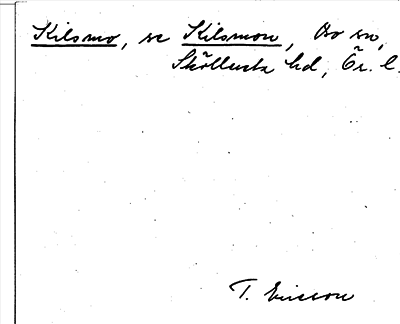 Kilsmo, se Kilsmon, Bo sn,
Sköllersta hd, Ör. l.
T. Ericsson